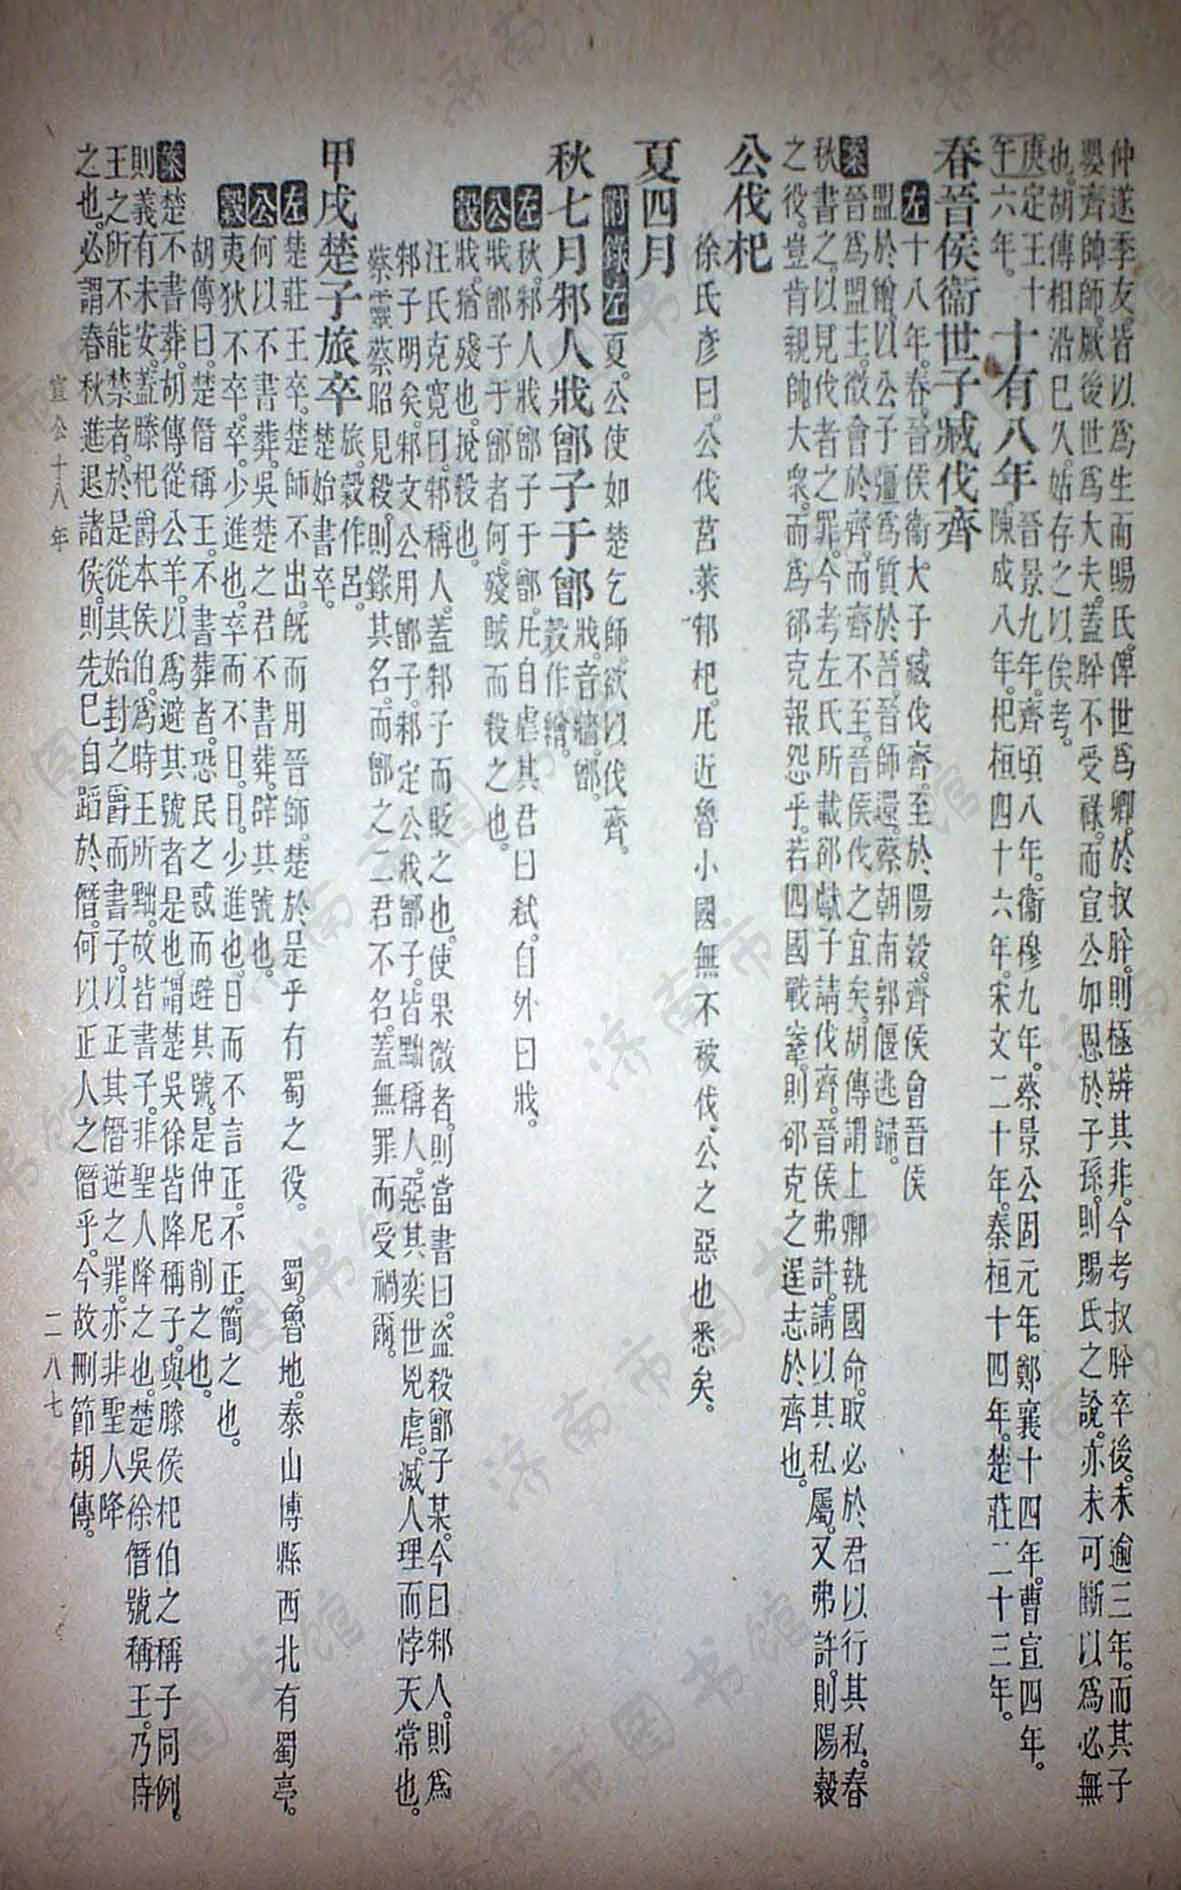 仲遂季友皆以爲生而賜氏。俾世爲卿。於叔肸。則極辨其非。今考叔肸卒後。未逾三年。而其子
嬰齊帥師。厥後世爲大夫。蓋肸不受祿。而宣公加恩於子孫。則賜氏之說。亦未可斷以爲必無
也。胡傳相沿已久。姑存之以俟考。
庚定王十
午六年。
十有八年
晉景九年。齊頃八年。衞穆九年。蔡景公固元年。鄭襄十四年。曹宣四年。
陳成八年。杞桓四十六年。宋文二十年。秦桓十四年。楚莊二十三年。
春晉侯衞世子臧伐齊
左十八年。春。晉侯衞大子臧伐齊。至於陽穀。齊侯會晉侯
盟於繒。以公子彊爲質於晉。晉師還。蔡朝南郭偃逃歸。
案晉爲盟主。徵會於齊。而齊不至。晉侯伐之宜矣。胡傳謂上卿執國命。取必於君以行其私。春
秋書之。以見伐者之罪。今考左氏所載郤獻子請伐齊。晉侯弗許。請以其私屬。又弗許。則陽穀
之役。豈肯親帥大衆。而爲郤克報怨乎。若四國戰鞌。則郤克之逞志於齊也。
公伐杞
徐氏彥曰。公伐莒萊邾杞。凡近魯小國無不被伐。公之惡也悉矣。
夏四月
附錄左夏。公使如楚乞師。欲以伐齊。
秋七月邾人戕鄫子于鄫
戕。音牆。鄫。
穀作繒。
左秋。邾人戕鄫子于鄫。凡自虐其君曰弒。自外曰戕。
公戕鄫子于鄫者何。殘賊而殺之也。
穀戕。猶殘也。捝殺也。
汪氏克寬曰。邾稱人。蓋邾子而貶之也。使果微者。則當書曰。盜殺鄫子某。今曰邾人。則爲
邾子明矣。邾文公用鄫子。邾定公戕鄫子。皆黜稱人。惡其奕世兇虐。滅人理而悖天常也。
蔡靈蔡昭見殺。則錄其名。而鄫之二君不名。蓋無罪而受禍爾。
甲戌楚子旅卒
旅。穀作呂。
楚始書卒。
左楚莊王卒。楚師不出。旣而用晉師。楚於是乎有蜀之役。 蜀。魯地。泰山博縣西北有蜀亭。
公何以不書葬。吳楚之君不書葬。辟其號也。
穀夷狄不卒。卒。少進也。卒而不日。日。少進也。日而不言正。不正。簡之也。
胡傳曰。楚僭稱王。不書葬者。恐民之惑而避其號。是仲尼削之也。
案楚不書葬。胡傳從公羊。以爲避其號者是也。謂楚吳徐皆降稱子。與滕侯杞伯之稱子同例。
則義有未安。蓋滕杞爵本侯伯。爲時王所黜。故皆書子。非聖人降之也。楚吳徐僭號稱王。乃時
王之所不能禁者。於是從其始封之爵而書子。以正其僭逆之罪。亦非聖人降
之也。必謂春秋進退諸侯。則先已自蹈於僭。何以正人之僭乎。今故刪節胡傳。
宣公十八年
二八七